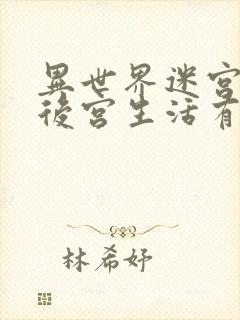 異世界迷宮
後宮生活有
林希妤